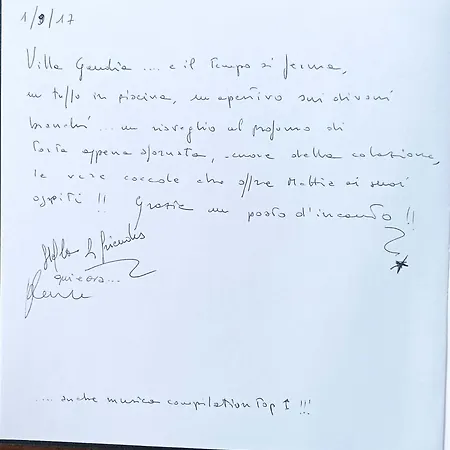 1/9/17
Villa Gaudia .... e il tempo si ferma,
un tuffo in piscina, un aperitivo sui divani
bianchi ... un risveglio al profumo di
torta appena sfornata, cuore della colazione,
le vere coccole che offre Mattia ai suoi
ospiti !! Grazie un posto d'incanto !!
qui e ora ...
.... anche musica compilation Top ↑ !!!